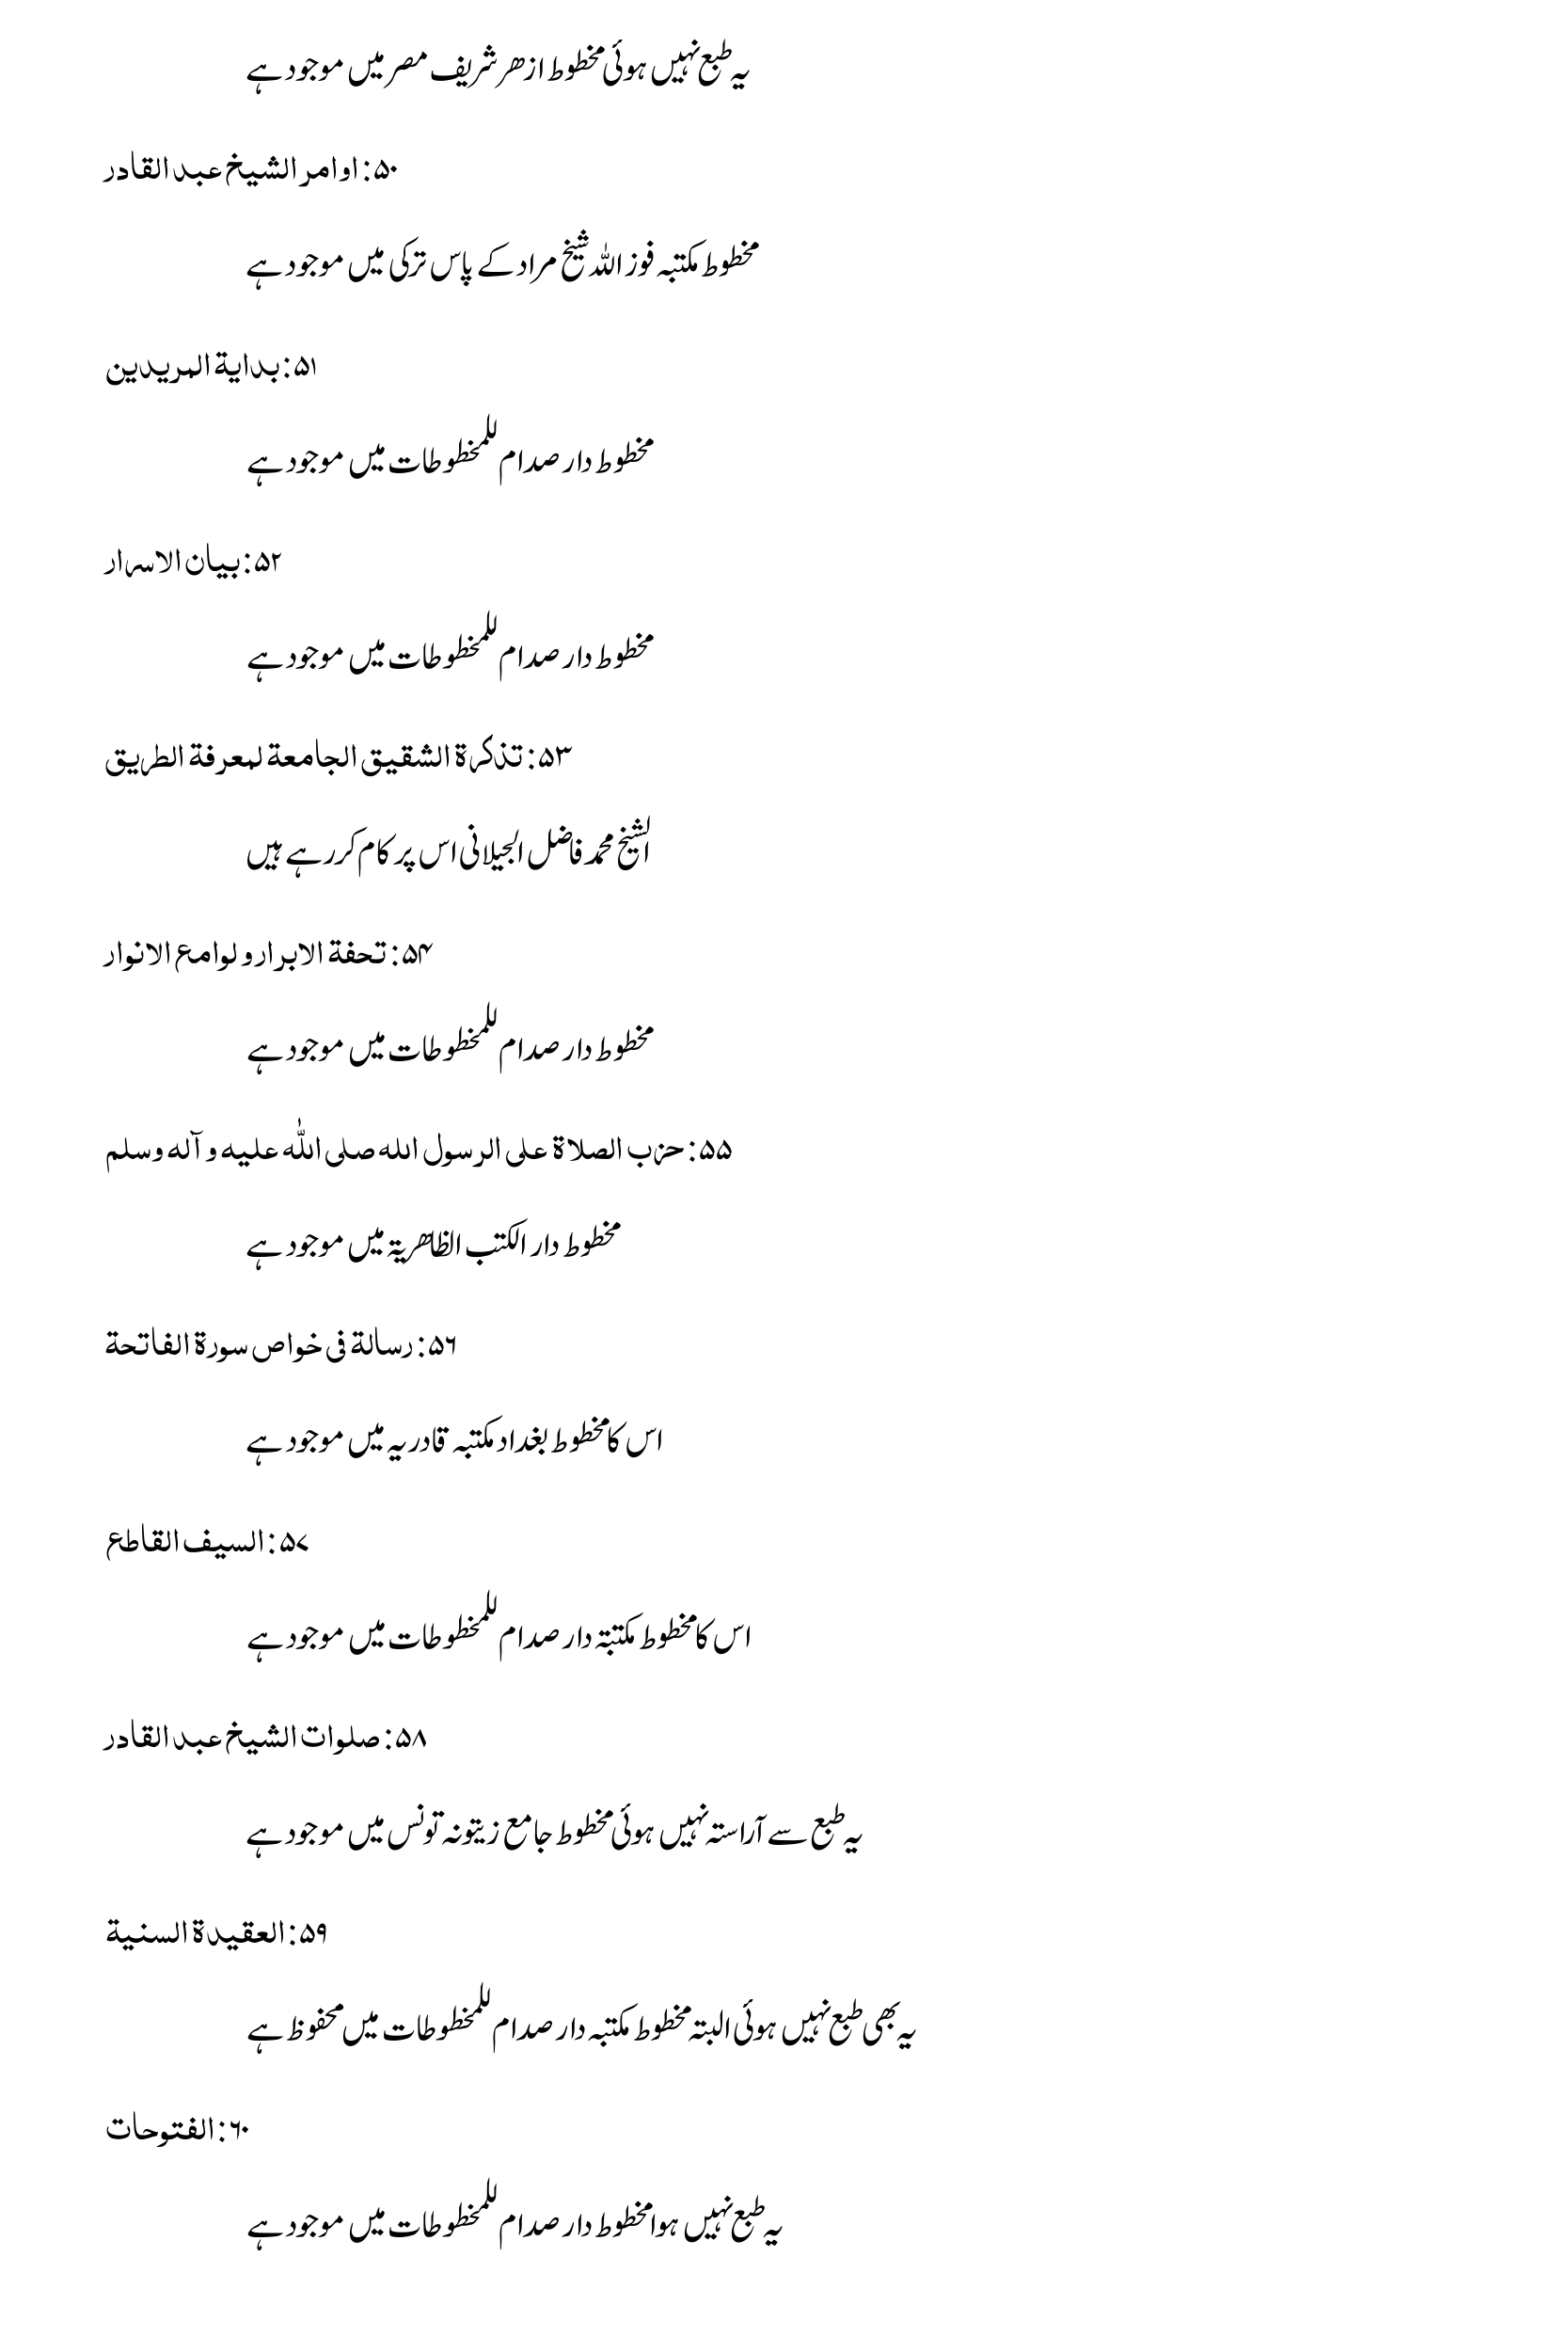 یہ طبع نہیں ہوئی مخطوط ازھر شریف مصر میں موجود ہے
۵۰: اوامر الشیخ عبد القادر
مخطوط مکتبہ فوز اللہ شیخ مراد کے پاس ترکی میں موجود ہے
۵۱: بدایة المریدین
مخطوط دار صدام للمخطوطات میں موجود ہے
۵۲: بیان الاسرار
مخطوط دار صدام للمخطوطات میں موجود ہے
۵۳: تذکرة الشقیق الجامعة لمعرفة الطریق
الشیخ محمد فاضل الجیلانی اس پر کام کررہے ہیں
۵۴: تحفة الابرار و لوامع الانوار
مخطوط دار صدام للمخطوطات میں موجود ہے
۵۵: حزب الصلاة علی الرسول الله صلی اللہ علیه و آله وسلم
مخطوط دار الکتب الظاھریة میں موجود ہے
۵۶: رسالة فی خواص سورة الفاتحة
اس کا مخطوط بغداد مکتبہ قادریہ میں موجود ہے
۵۷: السیف القاطع
اس کا مخطوط مکتبة دار صدام للمخطوطات میں موجود ہے
۵۸: صلوات الشیخ عبد القادر
یہ طبع سے آراستہ نہیں ہوئی مخطوط جامع زیتونہ تونس میں موجود ہے
۵۹: العقیدة السنیة
یہ بھی طبع نہیں ہوئی البتہ مخطوط مکتبہ دار صدام للمخطوطات میں محفوظ ہے
۶۰: الفتوحات
یہ طبع نہیں ہوا مخطوط دار صدام للمخطوطات میں موجود ہے